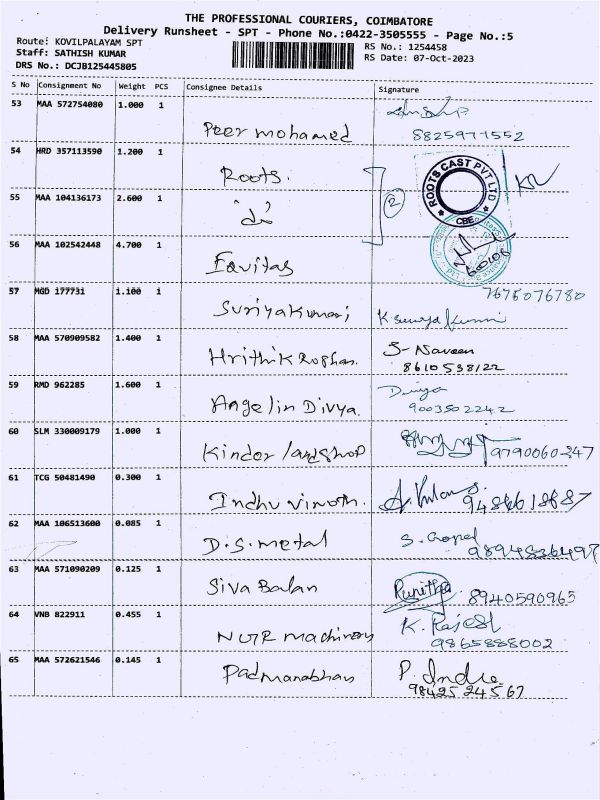 THE PROFESSIONAL COURIERS, COIMBATORE
Delivery Runsheet - SPT - Phone No.:0422-3505555 - Page No.:5
Route: KOVILPALAYAM SPT
Staff: SATHISH KUMAR
DRS No.: DCJB125445805
RS No.: 1254458
RS Date: 07-Oct-2023
S No Consignment No Weight PCS Consignee Details Signature
53 MAA 572754080 1.000 1
Peer mohamed 8825971552
54 HRD 357113590 1.200 1
Roots.
ROOTS CAST PVT LTD
CBE
55 MAA 104136173 2.600 1
2
56 MAA 102542448 4.700 1
Equitas
7675076780
57 MGD 177731 1.100 1
Suriyakumari
58 MAA 570909582 1.400 1
Hrithik Roshan. S- Naveen
8610538122
59 RMD 962285 1.600 1
Angelin Divya. Divya
9003502242
60 SLM 330009179 1.000 1
Kinder landshop 9790060247
61 TCG 50481490 0.300 1
Indhu vinoth.
62 MAA 106513600 0.085 1
D.S. metal S. Gopal
63 MAA 571090209 0.125 1
Siva Balan Punitha 8940590965
64 VNB 822911 0.455 1
machinery K. Rajesh
9865888002
65 MAA 572621546 0.145 1
Padmanabhan P. Indra
9842524567